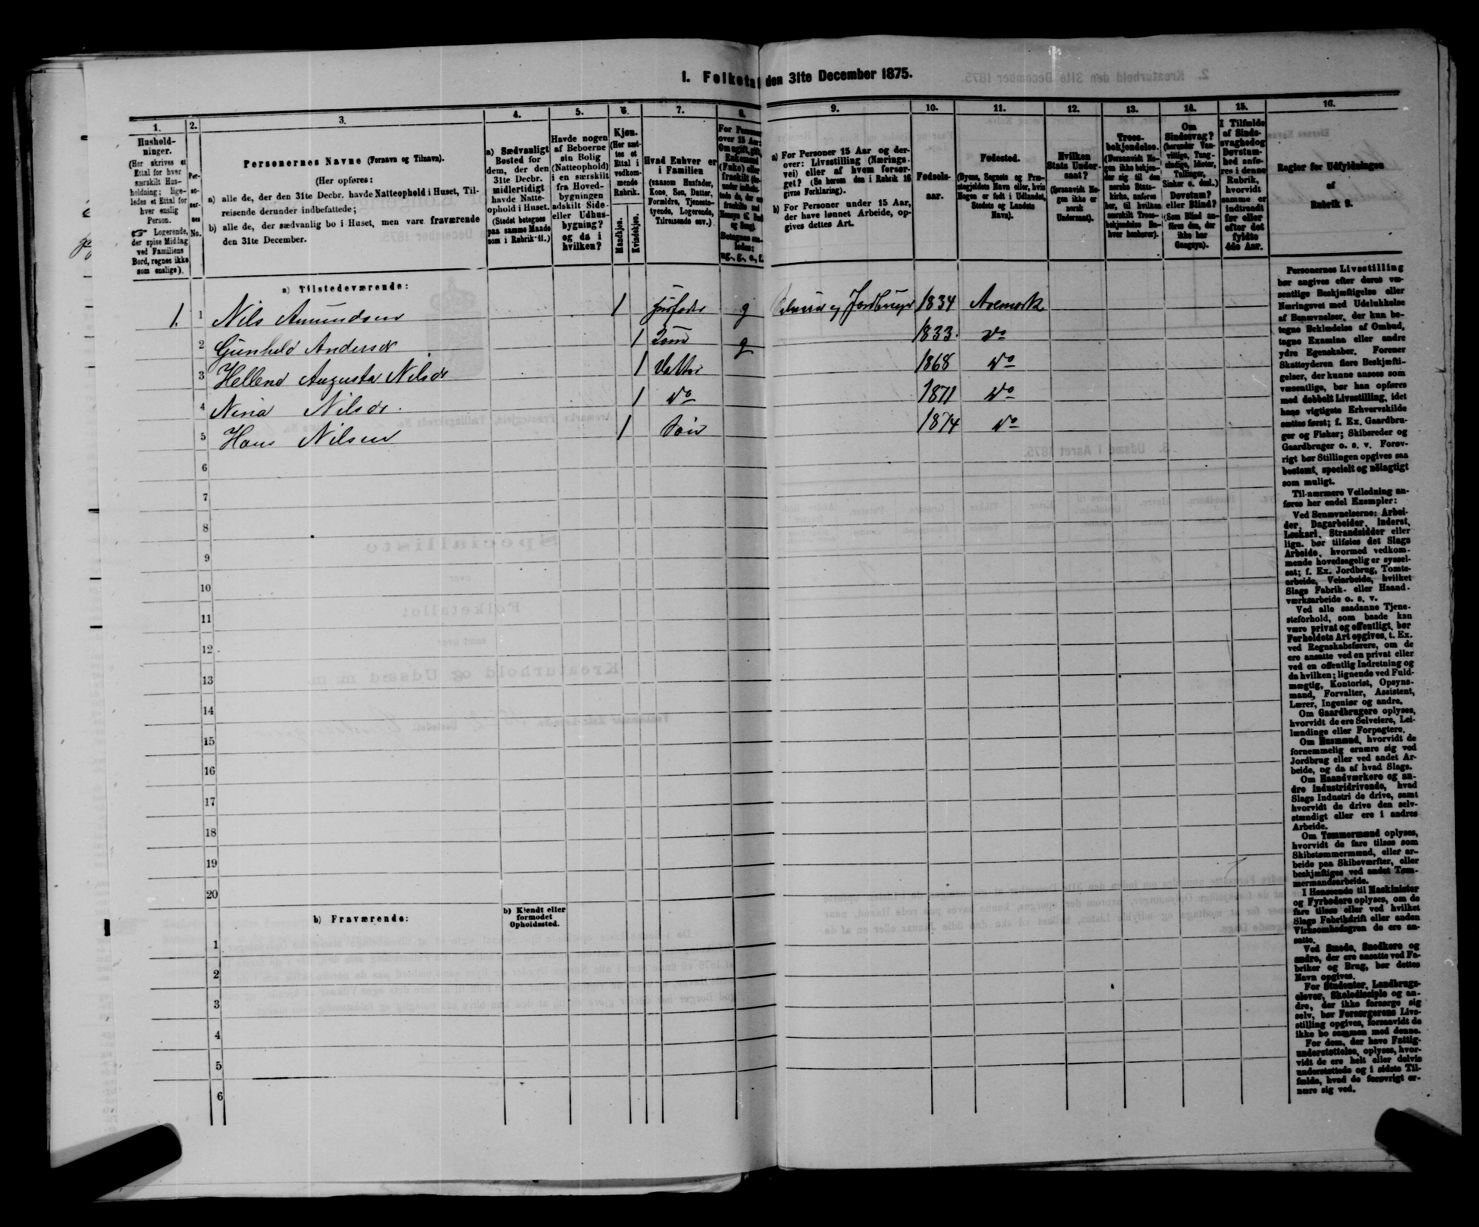 I. Folketal den 31te December 1875.
1. 2. 3. 4. 5. 6. 7. 8. 9. 10. 11. 12. 13. 14. 15. 16.
Hushold-
ninger.
(Her skrives et
Ettal for hver
særskilt Hus-
holdning; lige-
ledes et Ettal for
hver enslig
Person.
☞ Logerende,
der spise Middag
ved Familiens
Bord, regnes ikke
som enslige).
Per-
so-
ner-
nes
No.
Personernes Navne (Fornavn og Tilnavn).
(Her opføres:
a) alle de, der den 31te Decbr. havde Natteophold i Huset, Til-
reisende derunder indbefattede;
b) alle de, der sædvanlig bo i Huset, men vare fraværende
den 31te December.
a) Sædvanligt
Bosted for
dem, der den
31te Decbr.
midlertidigt
havde Natte-
ophold i Huset.
(Stedet betegnes
paa samme Maade
som i Rubrik 11.)
Havde nogen
af Beboerne
sin Bolig
(Natteophold)
i en særskilt
fra Hoved-
bygningen
adskilt Side-
eller Udhus-
bygning?
og da i
hvilken?
Kjøn.
(Her sæt-
tes et
Ettal i
vedkom-
mende
Rubrik.
Mandkjøn.
Kvindekjøn.
Hvad Enhver er
i Familien
(saasom Husfader,
Kone, Søn, Datter,
Forældre, Tjeneste-
tyende, Logerende,
Tilreisende osv.)
For Personer
over 15 Aar:
a) For Personer 15 Aar og der-
over: Livsstilling (Nærings-
vei) eller af hvem forsør-
get? (Se herom den i Rubrik 16
givne Forklaring).
b) For Personer under 15 Aar,
der have lønnet Arbeide, op-
gives dettes Art.
Fødsels-
aar.
Fødested.
(Byens, Sognets og Præ-
stegjeldets Navn eller, hvis
Nogen er født i Udlandet,
Stedets og Landets
Navn).
Hvilken
Stats Under-
saat?
(Forsaavidt No-
gen ikke er
norsk
Undersaat).
Troes-
bekjendelse.
Om
Sindssvag?
eller Blind?
I Tilfælde
af Sinds-
svaghed og
Døvstum-
hed anfø-
res i denne
Rubrik,
hvorvidt
samme er
indtraadt
før eller
efter det
fyldte
4de Aar.
Regler for Udfyldningen
af
Rubrik 9.
a) Tilstedeværende:
1. 1 Nils Amundsen 1 Husfader g Selveier og Jordbruger 1834 Aremark
2 Gunhild Andersd. 1 Kone g 1833 do
3 Helleno Augusta Nilsdr 1 Datter 1868 do
4 Nina Nilsdr. 1 do 1871 do
5 Hans Nilsen 1 Søn 1874 do
6
7
8
9
10
11
12
13
14
15
16
17
18
19
20
b) Fraværende:
b) Kjendt eller
formodet
Opholdssted.
1
2
3
4
5
6
Personernes Livsstilling
bør angives efter deres væ-
sentlige Beskjæftigelse eller
Næringsvei med Udelukkelse
af Benævnelser, der kun be-
tegne Beklædelse af Ombud,
tagne Examina eller andre
ydre Egenskaber. Forener
Skatteyderen flere Beskjæfti-
gelser, der kunne ansees som
væsentlige, bør han opføres
med dobbelt Livsstilling, idet
hans vigtigste Erhvervskilde
sættes først; f. Ex. Gaardbru-
ger og Fisker; Skibsreder og
Gaardbruger o. s. v. Forøv-
rigt bør Stillingen opgives saa
bestemt, specielt og nøiagtigt
som muligt.
Til nærmere Veiledning an-
føres her endel Exempler:
Ved Benævnelserne: Arbei-
der, Dagarbeider, Inderst,
Løskarl, Strandsidder eller
lign. bør tilføies det Slags
Arbeide, hvormed vedkom-
mende hovedsagelig er syssel-
sat; f. Ex. Jordbrug, Tomte-
arbeide, Veiarbeide, hvilket
Slags Fabrik- eller Haand-
værksarbeide o. s. v.
Ved alle saadanne Tjene-
steforhold, som baade kan
være privat og offentligt, bør
Forholdets Art opgives, t. Ex.
ved Regnskabsførere, om de
ere ansatte ved en privat eller
ved en offentlig Indretning og
da hvilken; lignende ved Fuld-
mægtig, Kontorist, Opsyns-
mand, Forvalter, Assistent,
Lærer, Ingeniør og andre.
Om Gaardbrugere oplyses,
hvorvidt de ere Selveiere, Lei-
lændinge eller Forpagtere.
Om Husmænd, hvorvidt de
fornemmelig ernære sig ved
Jordbrug eller ved andet Ar-
beide, og da af hvad Slags.
Om Haandværkere og an-
dre Industridrivende, hvad
Slags Industri de drive, samt
hvorvidt de drive den selv-
stændigt eller ere i andres
Arbeide.
Om Tømmermænd oplyses,
hvorvidt de fare tilsøs som
Skibstømmermænd, eller ar-
beide paa Skibsværfter, eller
beskjæftiges ved andet Tøm-
mermandsarbeide.
I Henseende til Maskinister
og Fyrbødere oplyses, om de
fare tilsøs eller ved hvilket
Slags Fabrikdrift eller anden
Virksomhedsgren de ere an-
satte.
Ved Smede, Snedkere og
andre, der ere ansatte ved Fa-
briker og Brug, bør dettes
Navn opgives.
For Studenter, Landbrugs-
elever, Skoledisciple og an-
dre, der ikke forsørge sig
selv, bør Forsørgerens Livs-
stilling opgives, forsaavidt de
ikke bo sammen med denne.
For dem, der have Fattig-
understøttelse, oplyses, hvor-
vidt de ere helt eller delvis
understøttede og i sidste Til-
fælde, hvad de forøvrigt er-
nære sig ved.